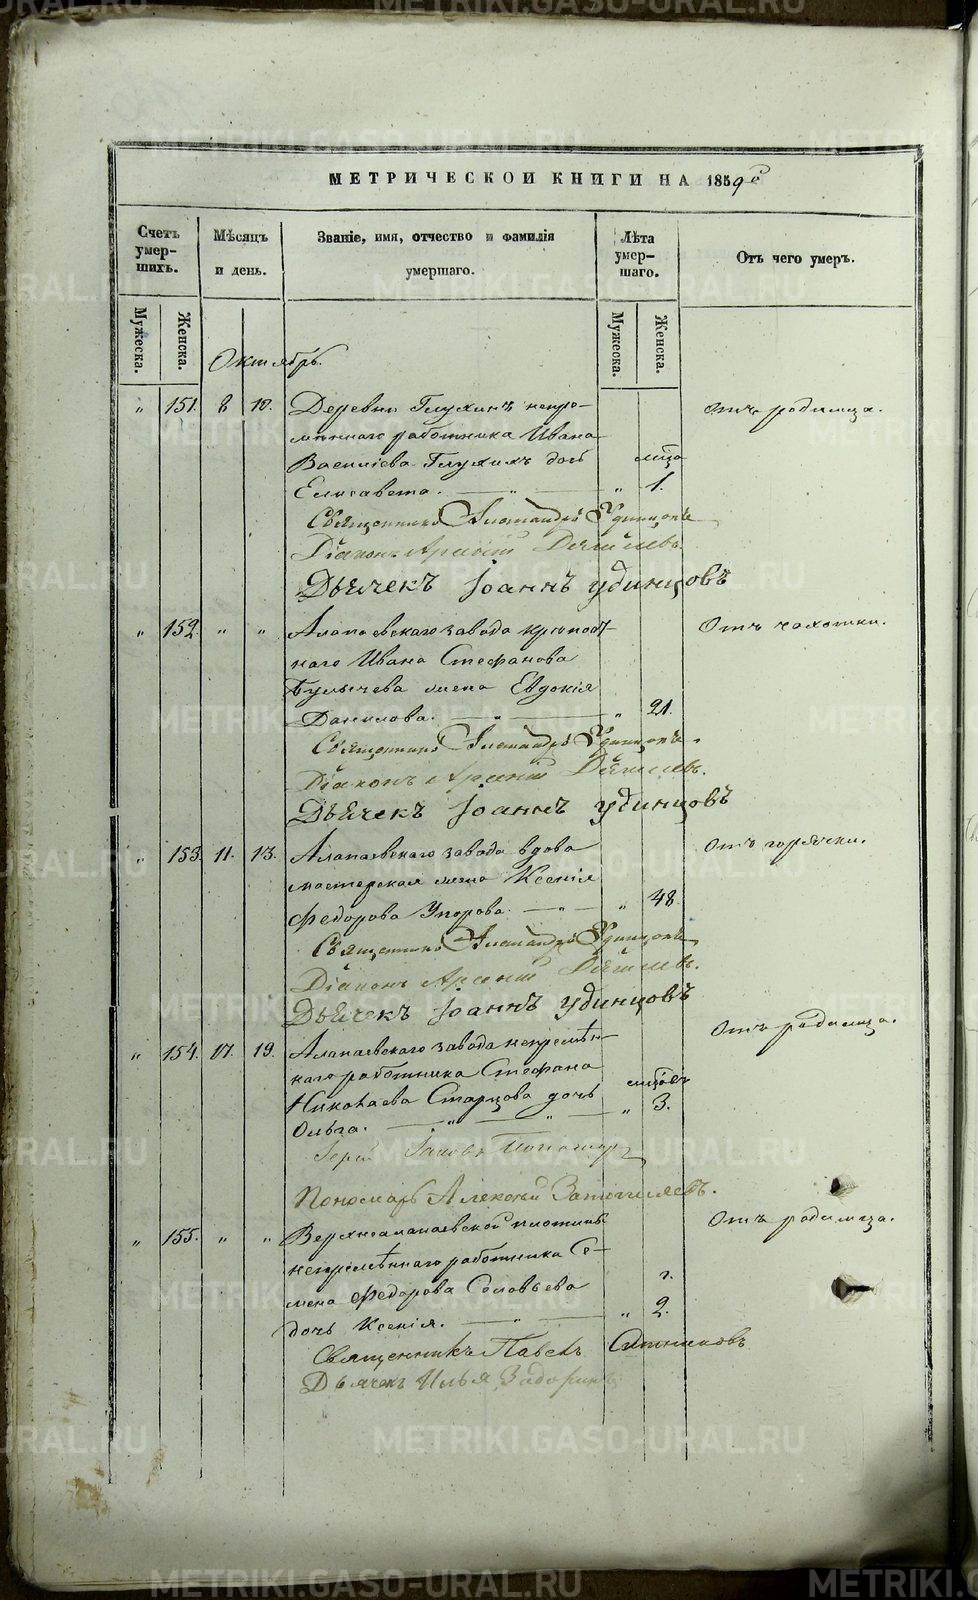 МЕТРИЧЕСКОЙ КНИГИ НА 1859 й
Счетъ умер-шихъ.
Мѣсяцъ и день.
Званіе, имя, отчество и фамилія умершаго.
Лѣта умер-шаго.
Отъ чего умеръ.
Мужеска.
Женска.
Мужеска.
Женска.
Октябрь.
„ 151. 8 10. Деревни Глухихъ непре- Отъ родимца.
мѣннаго работника Ивана
Василіева Глухихъ дочь мѣсца
Елисавета. — „ — „ 1.
Священникъ Александръ Удинцовъ
Діаконъ Арсеній
Дьячекъ Іоаннъ Удинцовъ
„ 152. „ „ Алапаевскаго завода крѣпост- Отъ чахотки.
наго Ивана Стефанова
Булычева жена Евдокія
Данилова. — „ — „ 21.
Священникъ Александръ Удинцовъ
Діаконъ Арсеній
Дьячекъ Іоаннъ Удинцовъ
„ 153. 11. 13. Алапаевскаго завода вдова Отъ горячки.
мастерская жена Ксенія
Федорова Упорова. — „ — „ 48.
Священникъ Александръ Удинцовъ
Діаконъ Арсеній
Дьячекъ Іоаннъ Удинцовъ
„ 154. 17. 19. Алапаевскаго завода непремѣн- Отъ родимца.
наго работника Стефана
Николаева Старцова дочь мѣсцовъ
Ольга. — „ — „ — „ 3.
Іерей Іаковъ Пономаревъ
Пономарь Алексѣй
„ 155. „ „ Верхнеалапаевской плотины Отъ родимца.
непремѣннаго работника Се-
мена Федорова Соловьева г.
дочь Ксенія. — „ — „ 2.
Священникъ Павелъ Ситниковъ
Дьячекъ Илья Задоринъ
METRIKI.GASO-URAL.RU